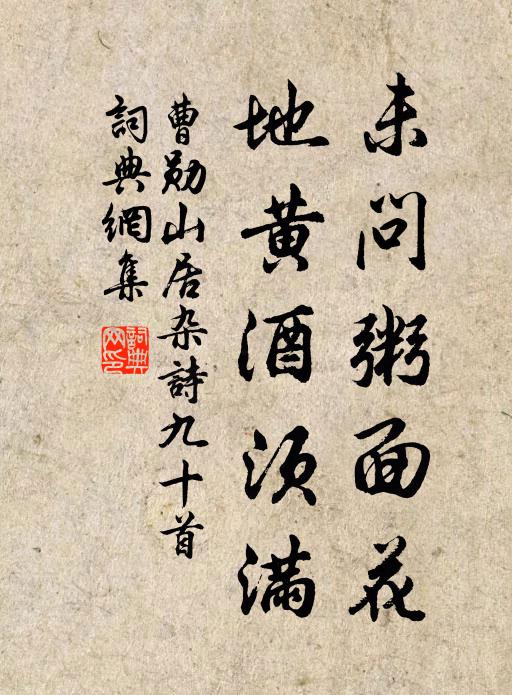 未问粥面花
地黄酒须满
曹勋山居杂詩九十首
詞典網集
詞典網印